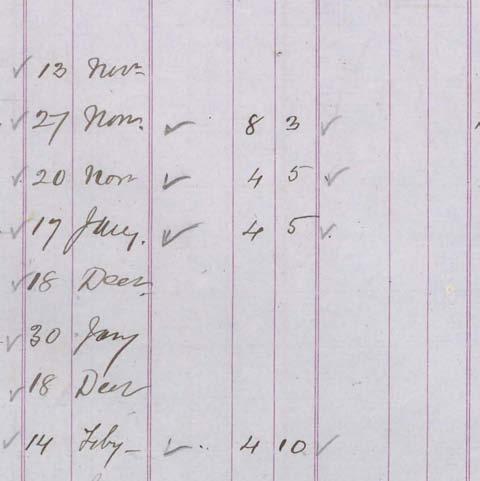 ✓ 13 Novr
✓ 27 Novr. ✓ 8 3 ✓
✓ 20 Novr ✓ 4 5 ✓
✓ 17 Jany. ✓ 4 5 ✓
✓ 18 Decr
✓ 30 Jany
✓ 18 Decr
✓ 14 Feby ✓ 4 10 ✓